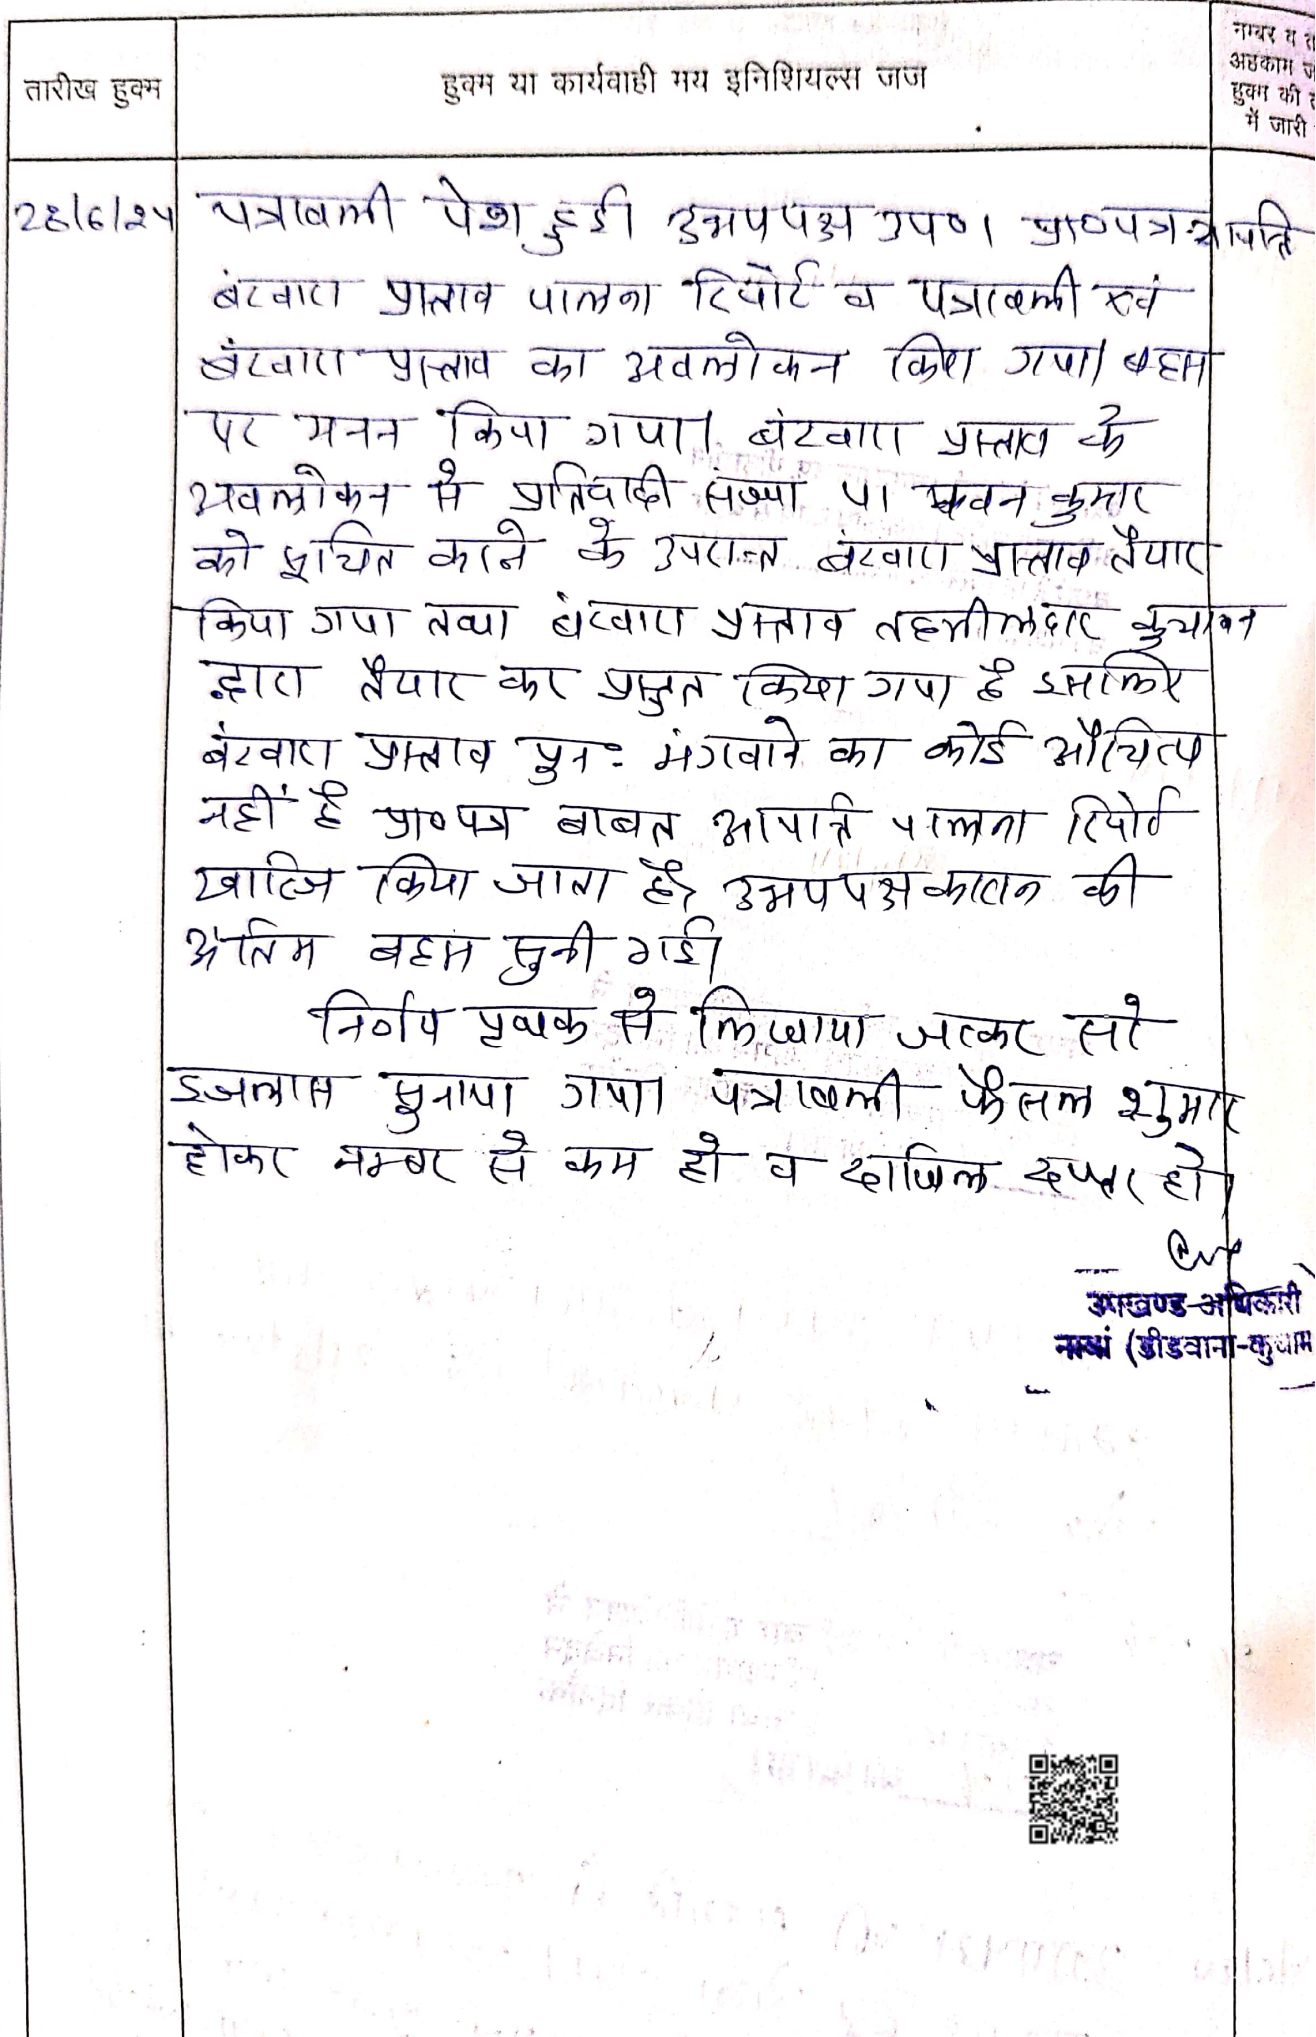 तारीख हुक्म
हुक्म या कार्यवाही मय इनिशियल्स जज
नम्बर व
अहकाम
हुक्म की
में जारी
28/6/24
पत्रावली पेश हुई। उभयपक्ष उप०। प्रा०पत्र आपत्ति
बंटवारा प्रस्ताव पालना रिपोर्ट व पत्रावली एवं
बंटवारा प्रस्ताव का अवलोकन किया गया। बहस
पर मनन किया गया। बंटवारा प्रस्ताव के
अवलोकन से प्रतिवादी संख्या कुमार
को सूचित करने के उपरान्त बंटवारा प्रस्ताव तैयार
किया गया तथा बंटवारा प्रस्ताव तहसीलदार कुचामन
द्वारा तैयार कर प्रस्तुत किया गया है इसलिए
बंटवारा प्रस्ताव पुन: मंगवाने का कोई औचित्य
नहीं है प्रा०पत्र बाबत आपत्ति पालना रिपोर्ट
खारिज किया जाता है, उभयपक्षकारान की
अंतिम बहस सुनी गई।
निर्णय पृथक से लिखाया जाकर सरे
इजलास सुनाया गया। पत्रावली फैसल शुमार
होकर नम्बर से कम हो व दाखिल दफ्तर हो।
उपखण्ड अधिकारी
नावां (डीडवाना-कुचाम